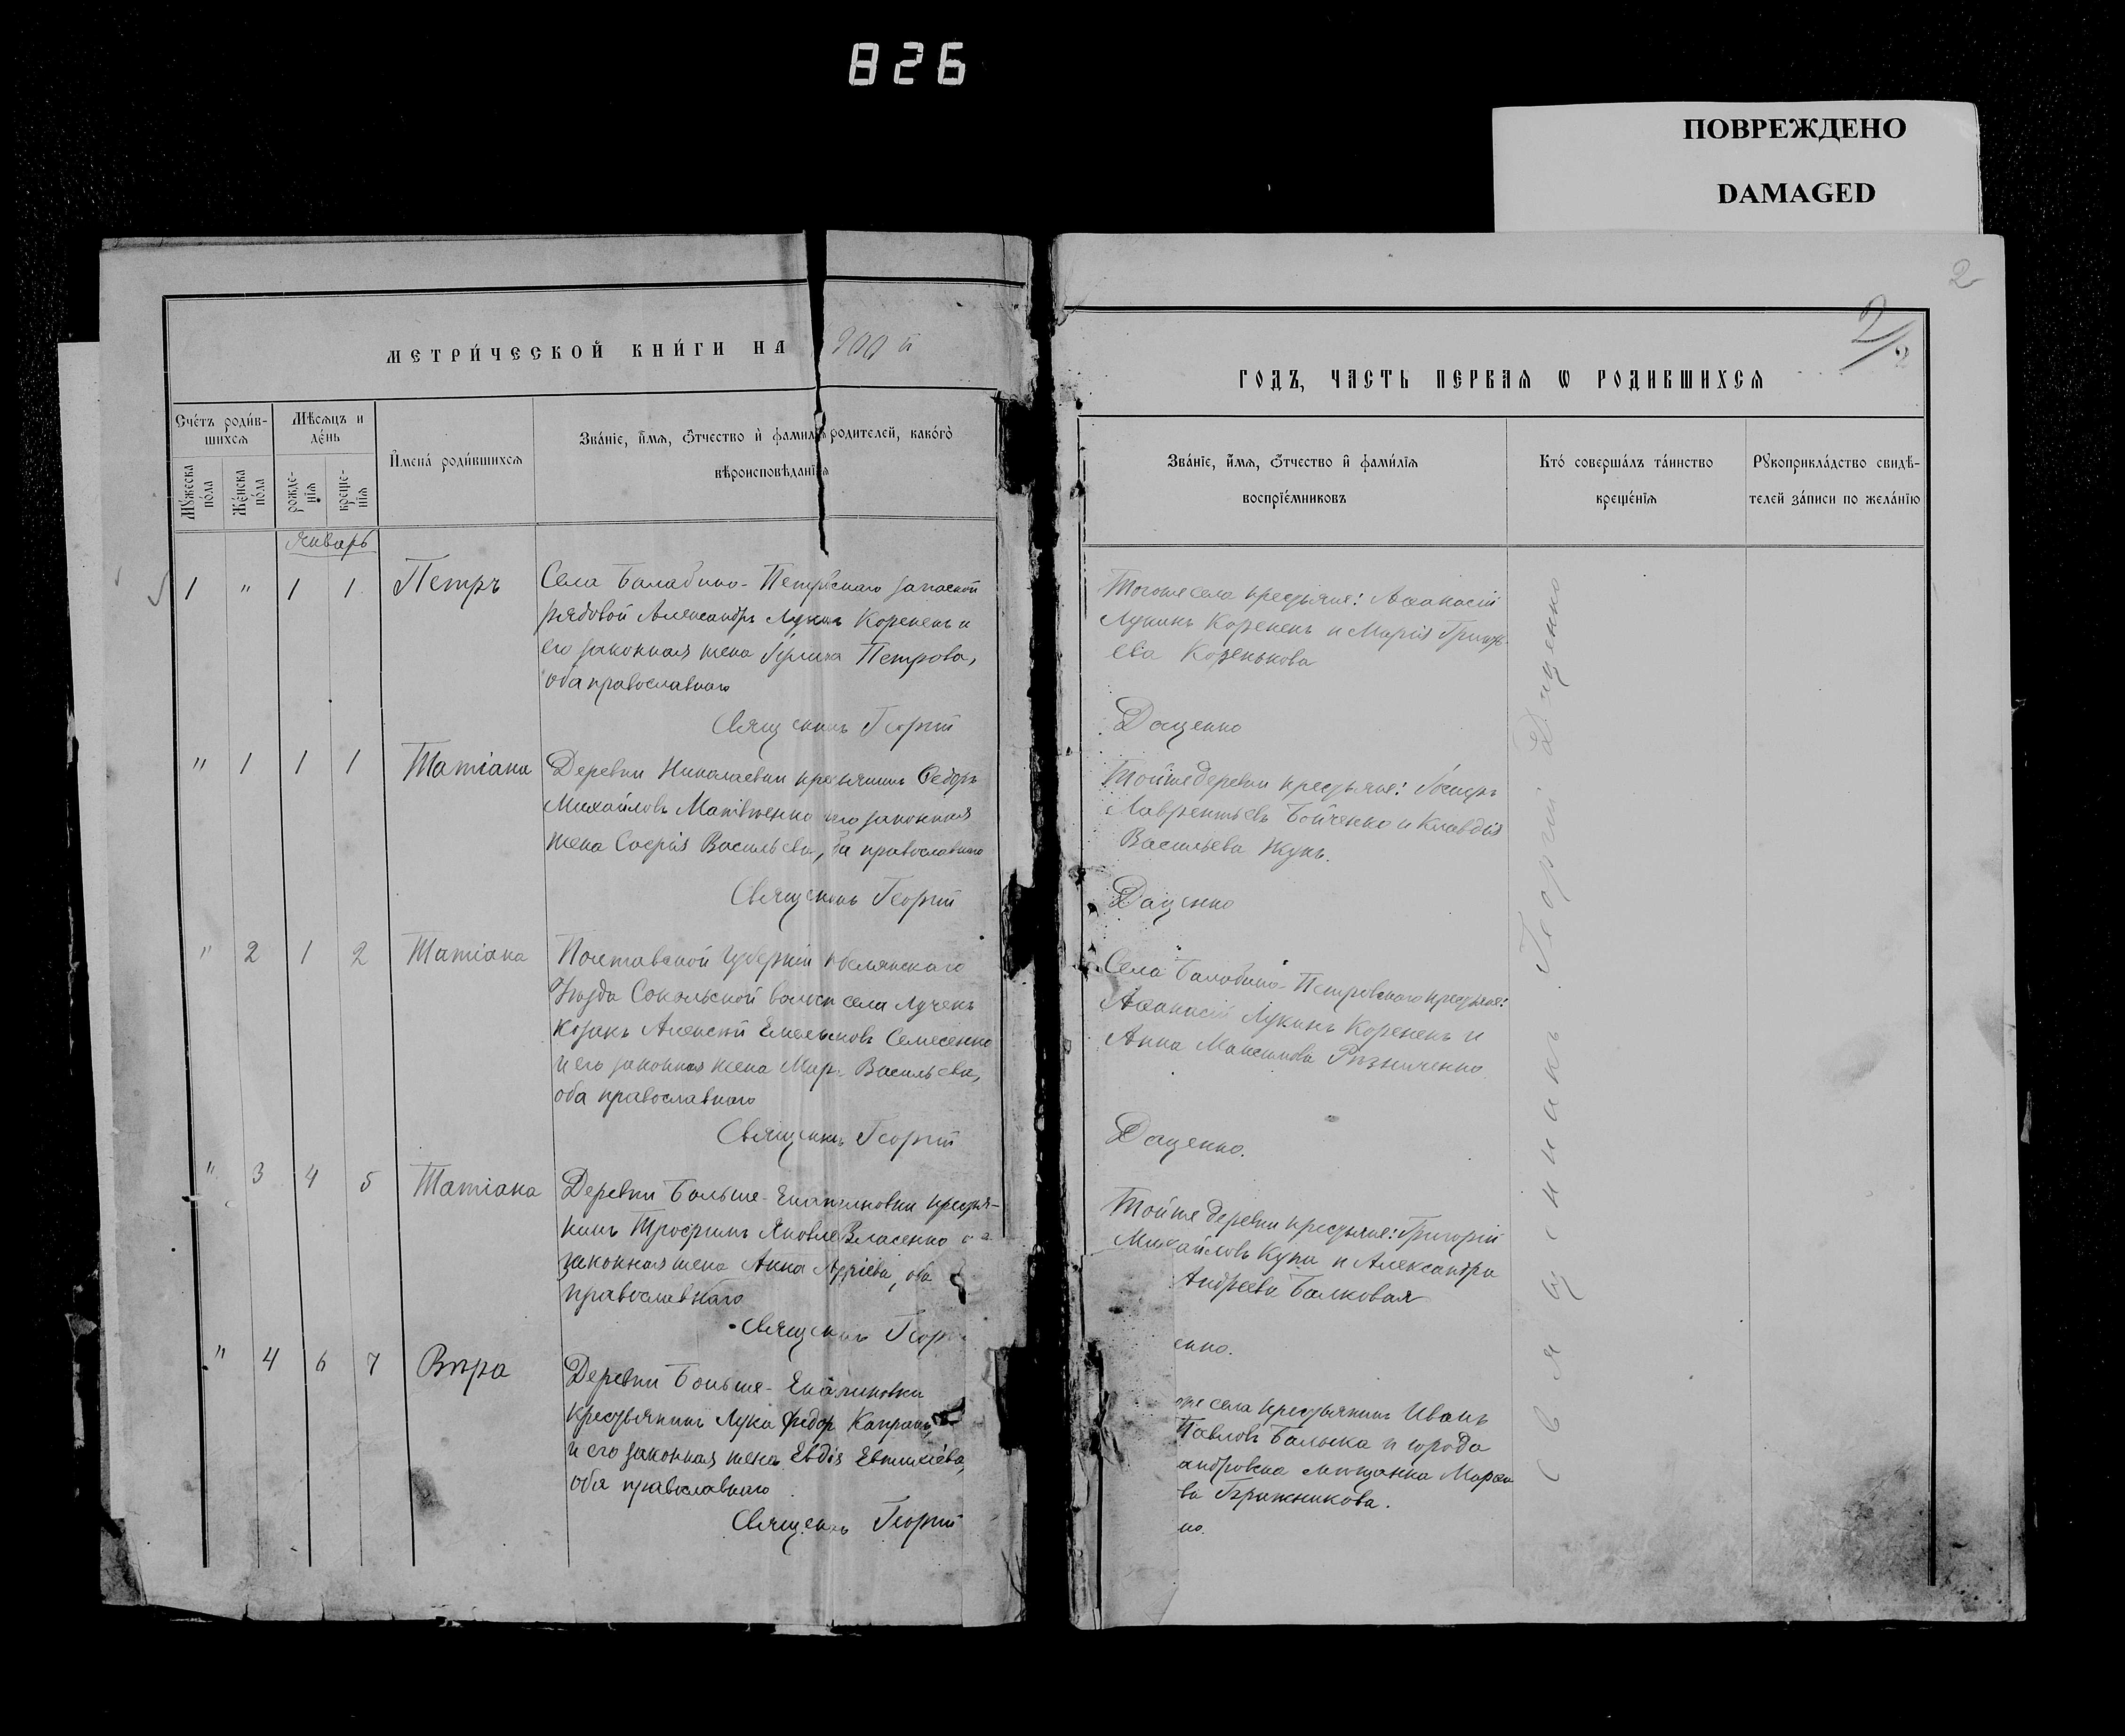 826
ПОВРЕЖДЕНО
DAMAGED
2
МЕТРИ́ЧЕСКОЙ КНИ́ГИ НА 900 й
ГОДЪ, ЧАСТЬ ПЕРВАѦ Ѡ РОДИВШИХСѦ
Счётъ роди́в-
шихсѧ
Мѣ́сѧцъ и
де́нь
Мꙋ́жеска
по́ла
Же́нска
по́ла
рожде-
нїѧ
креще-
нїѧ
И҆мена̀ роди́вшихсѧ
Зва́нїе, и҆́мѧ, ѻ҆́тчество и҆ фами́лїѧ родителей, како́гѡ
вѣроисповѣ́данїѧ
Зва́нїе, и҆́мѧ, ѻ҆́тчество и҆ фами́лїѧ
воспрїе́мниковъ
Кто́ соверша́лъ та́инство
креще́нїѧ
Рꙋкоприкла́дство свидѣ́-
телей за́писи по жела́нїю
Январь
1 " 1 1 Петръ
Села Балабино-Петровскаго запасной
рядовой Александръ Лукинъ Коренекъ и
его законная жена Петрова,
оба православнаго
Священникъ Георгій
Тогоже села крестьяне: Аѳанасій
Лукинъ Коренекъ и Марія Григорь-
ева Козенькова
Даценко
" 1 1 1 Татіана
Деревни Николаевки крестьянинъ Ѳедоръ
Михайловъ Матвѣенко его законная
жена Софія Васильева, православнаго
Священникъ Георгій
Тойже деревни крестьяне:
Лаврентьевъ Бойченко и Клавдія
Васильева Жукъ.
Даценко
" 2 1 2 Татіана
Полтавской губерніи Кобелянскаго
Уѣзда Сокольской волости села Лучекъ
козакъ Алексѣй Емельяновъ Семесенко
и его законная жена Мар. Васильева,
оба православнаго
Священникъ Георгій
Села Балабино-Петровскаго крестьяне:
Аѳанасій Лукинъ Коренекъ и
Анна Максимова Рѣзниченко
Даценко.
" 3 4 5 Татіана
Деревни Больше-Екатериновки крестья-
нинъ Трофимъ Яковле Власенко
законная жена Анна оба
православнаго
Священникъ Геор
Тойже деревни крестьяне: Григорій
Михайловъ Купа и Александра
Андреева Балковая
енко.
" 4 6 7 Вѣра
Деревни Больше-
крестьянинъ Лука Ѳедор Капранъ,
и его законная жена Евдія Евтихіева,
оба православнаго
Священникъ Георгій
же села крестьянинъ Иванъ
Павловъ Балыка и города
андровска мѣщанка Марѳа
ва Бражникова.
ко.
Священникъ Георгій Даценко